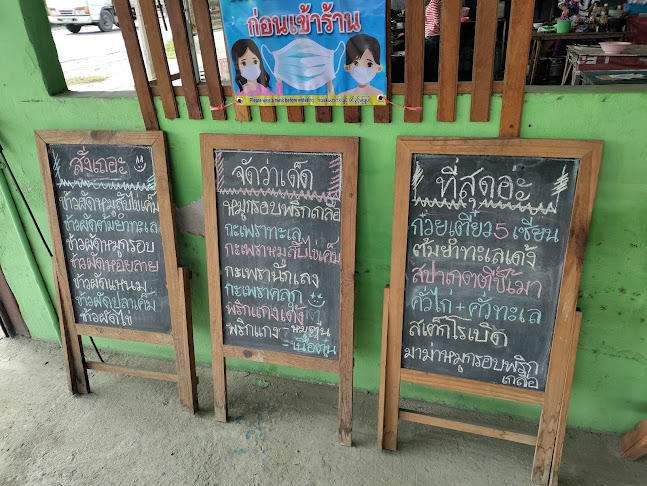 ก่อนเข้าร้าน
สั่งเถอะ
ข้าวผัดหมูสับไข่เค็ม
ข้าวผัดต้มยำทะเล
ข้าวผัดหมูกรอบ
ข้าวผัดหอยลาย
ข้าวผัดแหนม
ข้าวผัดปลาเค็ม
ข้าวผัดไข่
จัดว่าเด็ด
หมูกรอบพริกเกลือ
กะเพราทะเล
กะเพราหมูสับไข่เค็ม
กะเพรานักเลง
กะเพราคลุก
พริกแกงเด้ง
พริกแกง - หมูตุ๋น
- เนื้อตุ๋น
ที่สุดอ่ะ
ก๋วยเตี๋ยว 5 เซียน
ต้มยำทะเลเดือด
สปาเกตตีขี้เมา
คั่วไก่ + คั่วทะเล
สเต็กโรเบิด
มาม่าหมูกรอบพริก
เกลือ